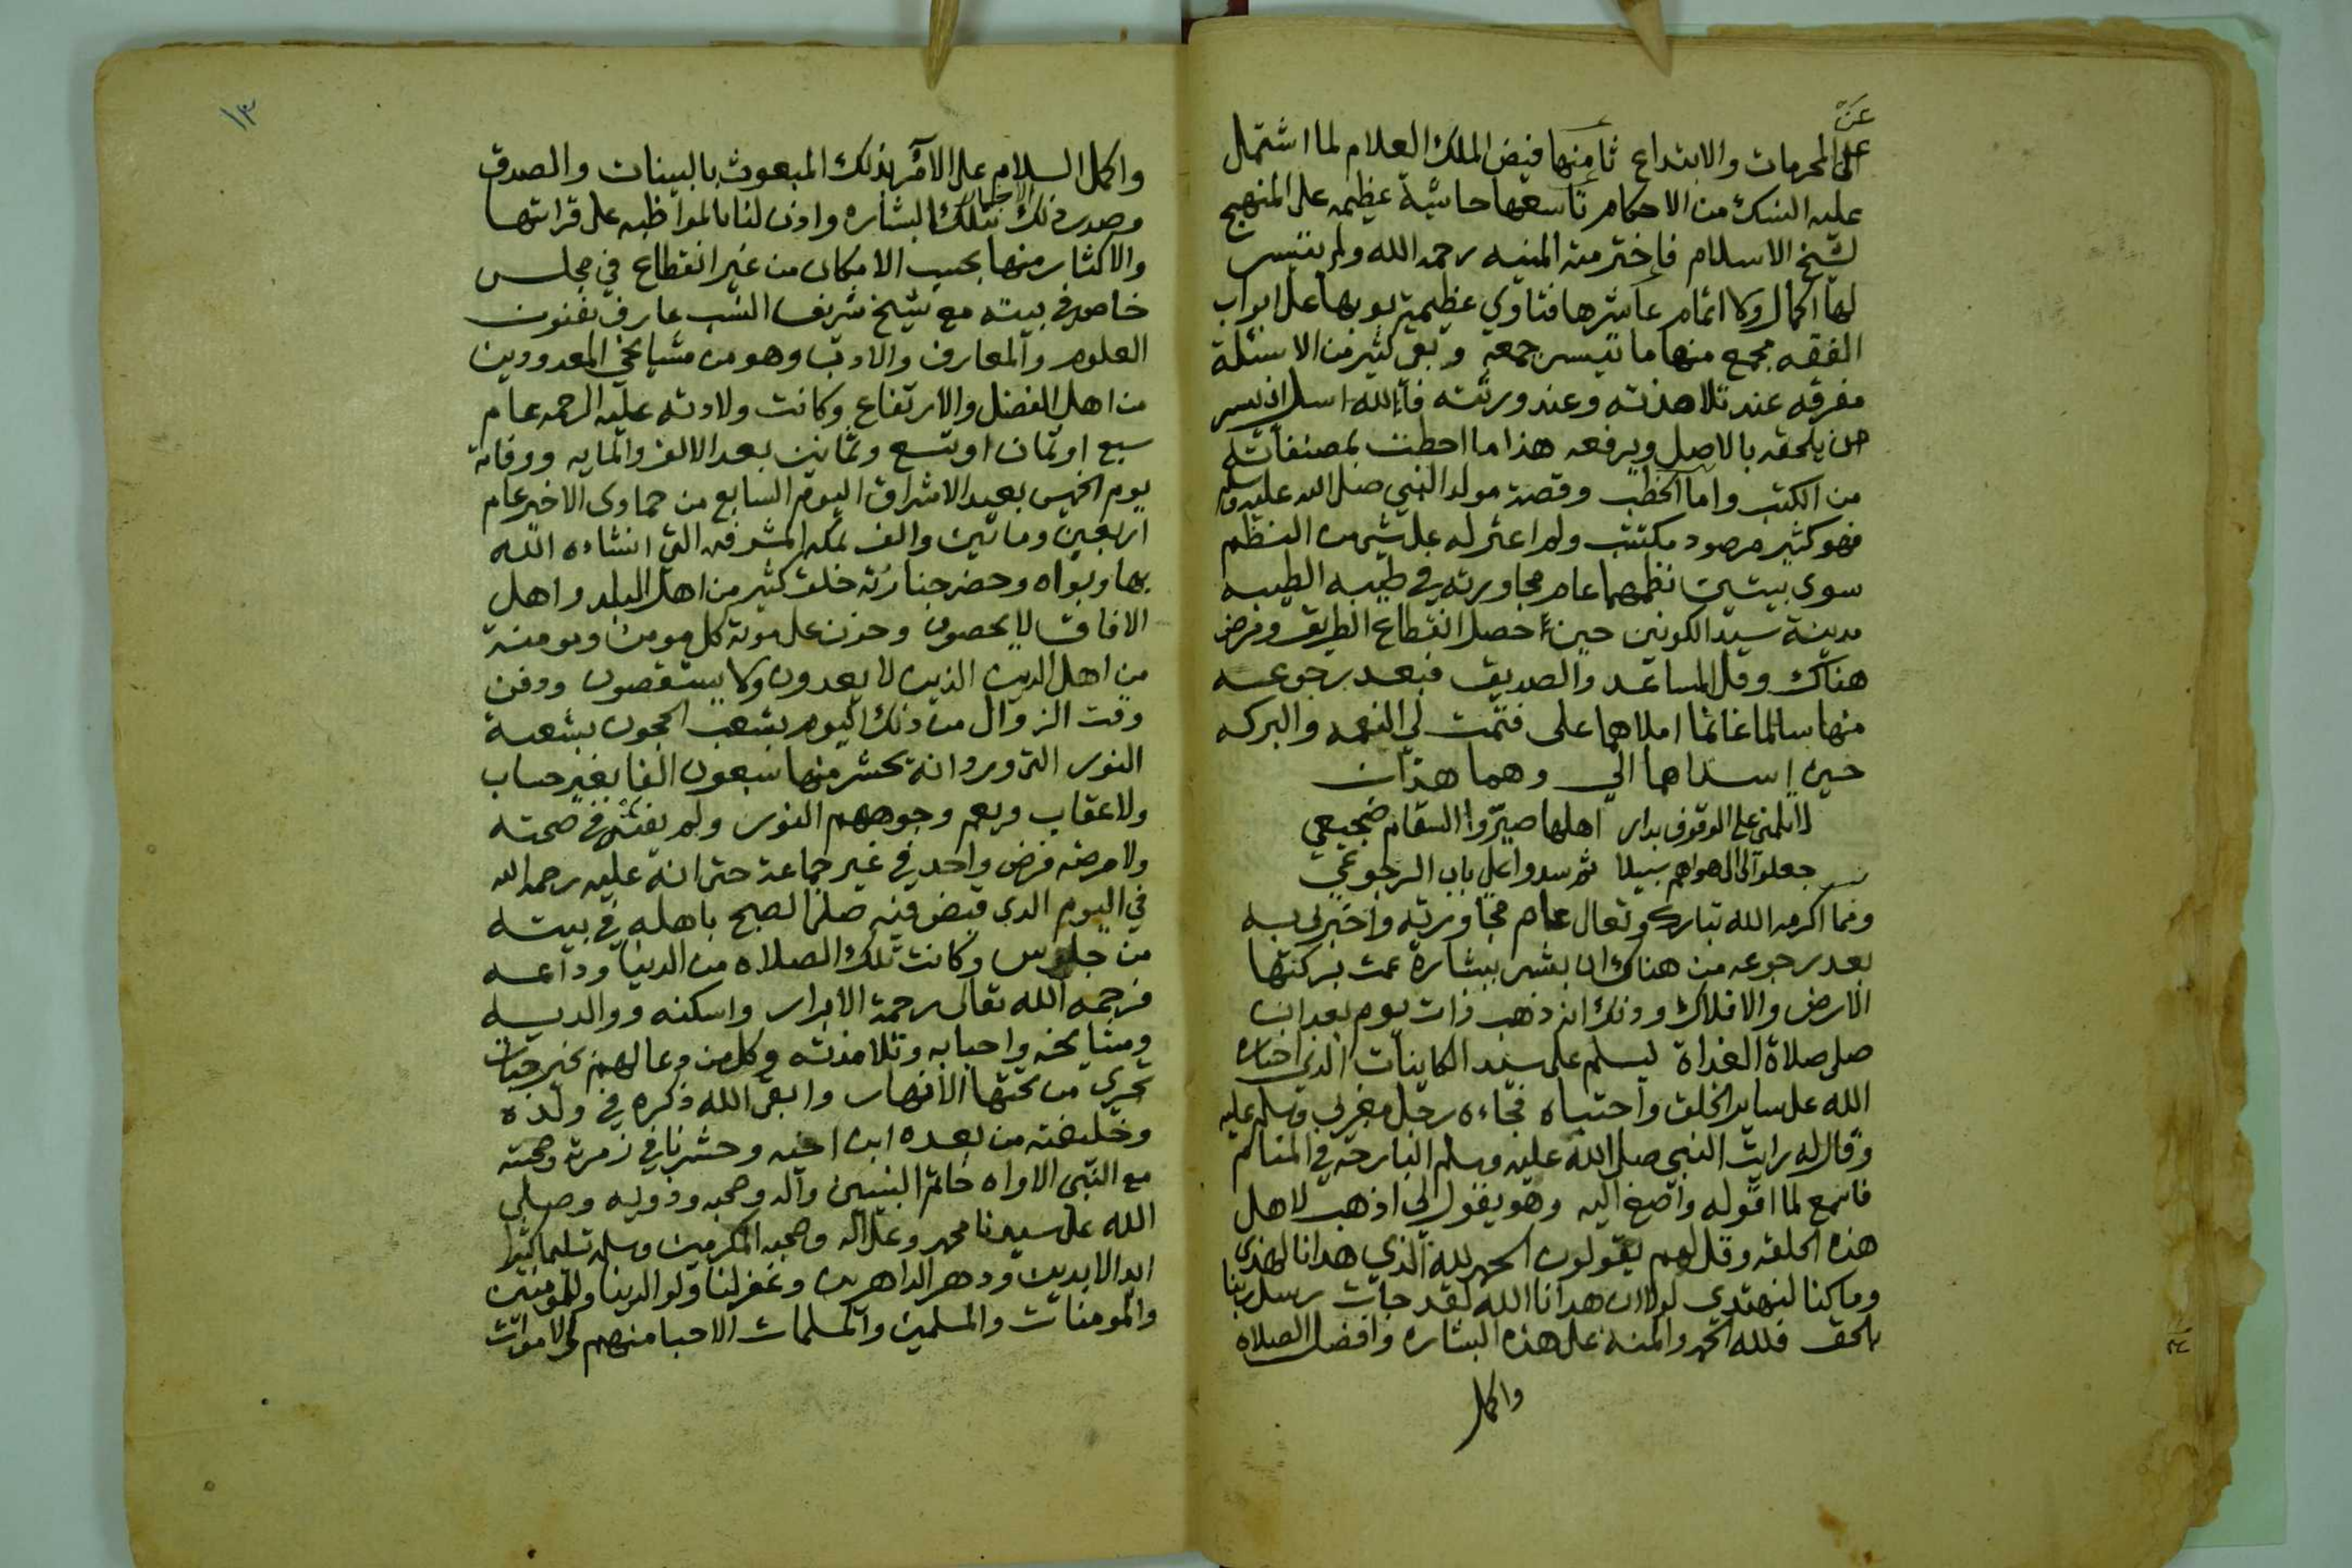 عن
على المحرمات والابتداع ثامنها فيض الملك العلام لما اشتمل
عليه النسك من الاحكام تاسعها حاشية عظيمه على المنهج
لشيخ الاسلام فاخترمته المنيه رحمه الله ولم يتيسر
لها اكمال ولا اتمام عاشرها فتاوي عظيمة بوبها على ابواب
الفقه مجمع منها ما تيسر جمعه وبقى كثير من الاسئلة
مفرقه عند تلامذته وعند ورثته فالله اسل ان ييسر
من يلحقه بالاصل ويرفعه هذا ما احطت بمصنفاته
من الكتب واما الخطب وقصة مولد النبي صلى الله عليه وسلم
فهو كثير مرصود مكتتب ولم اعثر له على شي من النظم
سوى بيتين نظمهما عام مجاورته في طيبه الطيبه
مدينة سيد الكونين حين حصل انقطاع الطريق ومرض
هناك وقل المساعد والصديق فبعد رجوعه
منها سالما غانما املاهما على فتمت لي النعمه والبركه
حين اسداها الي وهما هذان
لا تلمني على الوقوف بدار اهلها صيروا السقام ضجيعي
جعلوا لي الى هواهم سبيلا ثم سدوا على باب الرجوعي
ومما اكرمه الله تبارك وتعالى عام مجاورته واخبرني به
بعد رجوعه من هناك ان بشر ببشارة عمت بركتها
الارض والافلاك وذلك انه ذهب ذات يوم بعد ان
صلى صلاة الغداة ليسلم على سيد الكاينات الذي اختاره
الله على ساير الخلق واجتباه فجاءه رجل مغربي وسلم عليه
وقال له رايت النبي صلى الله عليه وسلم البارحة في المنام
فاسمع لما اقوله واصغ اليه وهو يقول لي اذهب لاهل
هذه الحلقه وقل لهم يقولون الحمد لله الذي هدانا لهذا
وما كنا لنهتدي لولا ان هدانا الله لقد جات رسل ربنا
بالحق فلله الحمد والمنة على هذه البشاره وافضل الصلاه
واكمل
١٣
واكمل السلام على الآمر بذلك المبعوث بالبينات والصدق
وصدر ذلك الاخبار بتلك البشاره واذن لنا بالمواظبه على قراتها
والاكثار منها بحسب الامكان من غير انقطاع في مجلس
خاص في بيته مع شيخ شريف النسب عارف بفنون
العلوم والمعارف والادب وهو من مشايخي المعدودين
من اهل الفضل والارتفاع وكانت ولادته عليه الرحمه عام
سبع او ثمان او تسع وثمانين بعد الالف والمايه ووفاته
يوم الخميس بعيد الاشراق اليوم السابع من جمادى الاخير عام
اربعين وماتين والف بمكه المشرفه التي انشاءه الله
بها وبواه وحضر جنازته خلق كثير من اهل البلد واهل
الافاق لا يحصون وحزن على موته كل مومن ومومنة
من اهل الدين الذين لا يعدون ولا يستقصون ودفن
وقت الزوال من ذلك اليوم بشعب الحجون بشعبة
النور التي ورد انه يحشر منها سبعون الفا بغير حساب
ولا عقاب ويعم وجوههم النور ولم يفته في صحته
ولا مرضه فرض واحد في غير جماعة حتى انه عليه رحمه الله
في اليوم الذي قبض فيه صلى الصبح باهله في بيته
من جلوس وكانت تلك الصلاه من الدنيا وداعه
فرحمه الله تعالى رحمة الابرار واسكنه ووالديه
ومشايخه واحبابه وتلامذته وكل من دعا لهم بخير جنات
تجري من تحتها الانهار وابقى الله ذكره في ولده
وخليفته من بعده ابن اخيه وحشرنا في زمرته وصحبته
مع النبي الاواه خاتم النبيين وآله وصحبه وذويه وصلى
الله على سيدنا محمد وعلى اله وصحبه المكرمين وسلم تسليما كثيرا
ابد الابدين ودهر الداهرين وغفر لنا ولوالدينا وللمومنين
والمومنات والمسلمين والمسلمات الاحيا منهم والاموات